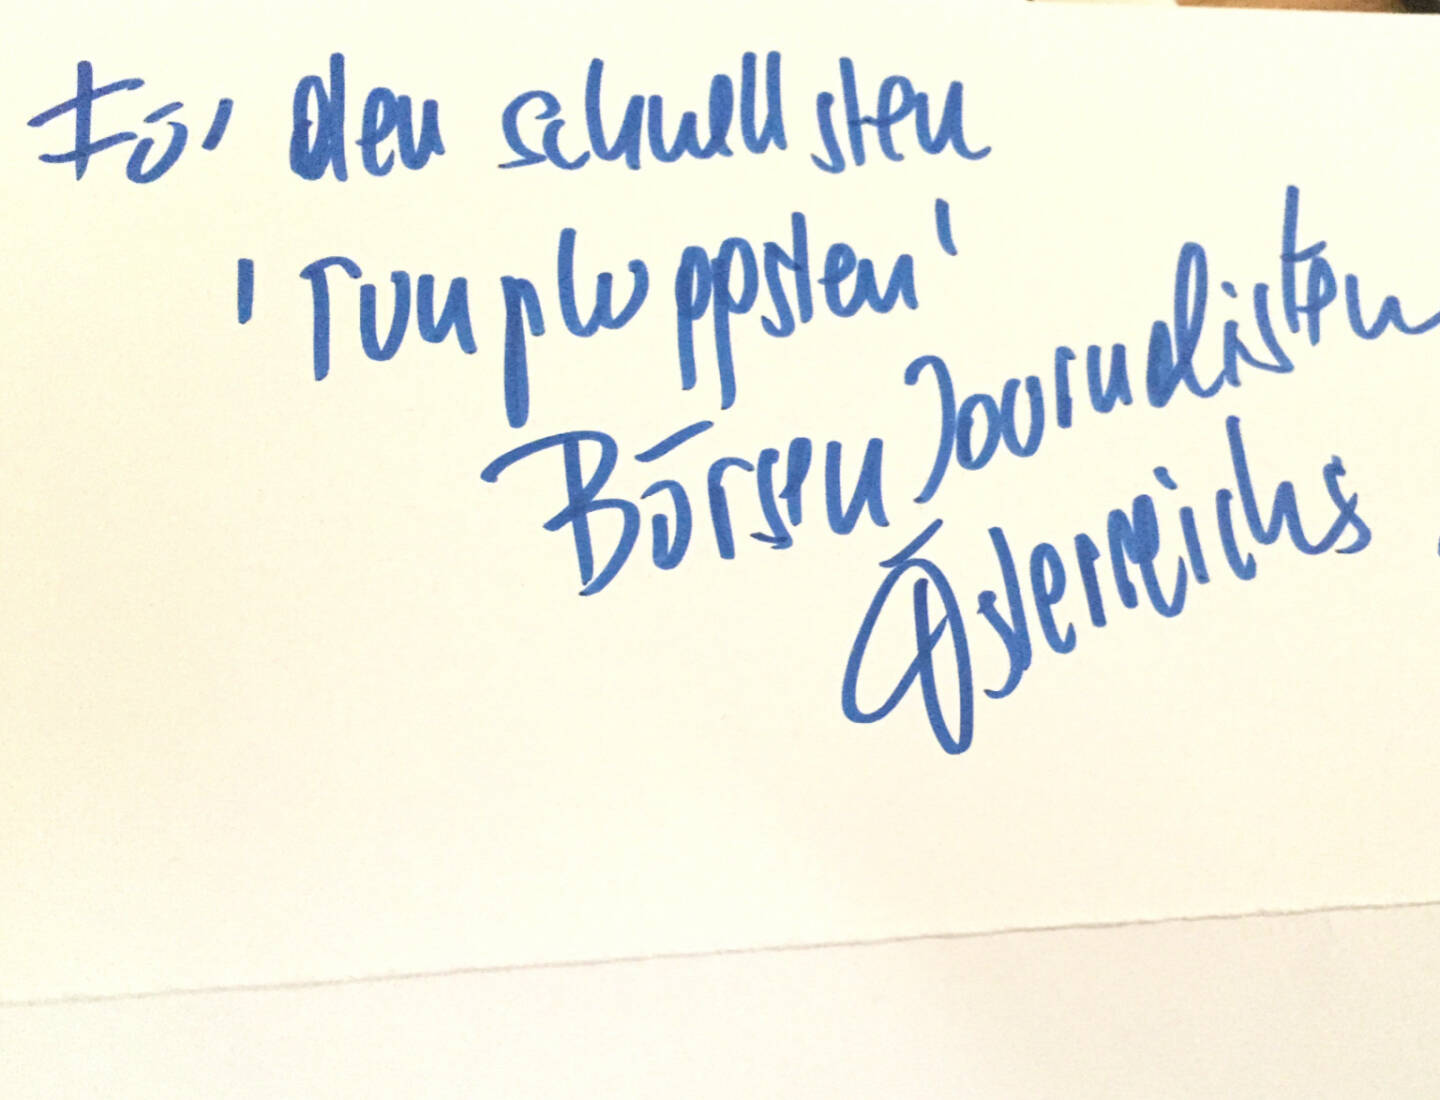 Für den schnellsten
'runpluppsten'
Börsenjournalisten
Österreichs